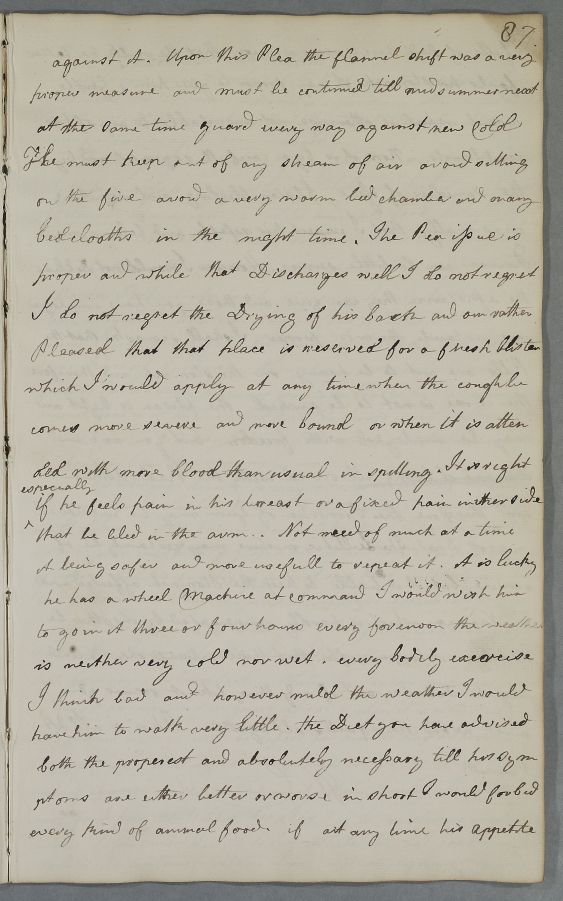 87.
against it. Upon this Plea the flannel shift was a very
proper measure and must be continued till midsummer next
at the same time guard every way against new Cold
He must keep out of any stream of air avoid sitting
on the fire avoid a very warm bed chamber and many
bedcloaths in the night time. The Pea issue is
proper and while that Discharges well I do not regret
I do not regret the Drying of his back and am rather
Pleased that that place is reserved for a fresh blister
which I would apply at any time when the cough be
comes more severe and more bound or when it is atten
ded with more blood than usual in spitting. It is right
especially
if he feels pain in his breast or a fixed pain in ther side
that he bled in the arm.. Not need of much at a time
it being safer and more usefull to repeat it. it is lucky
he has a wheel Machine at command I would wish him
to go in it three or four hours every forenoon the weather
is neither very cold nor wet. every bodily excercise
I think bad and however mild the weather I would
have him to walk very little. the Diet you have advised
both the properest and absolutely necessary till his sym
ptoms are either better or worse in short I would forbid
every kind of animal food. if at any time his appetite